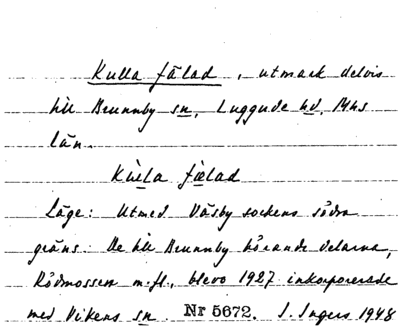 Kulla fälad, utmark delvis
till Brunnby sn, Luggude hd, Mhs
län.
Kùlla fælad
Läge: Utmed Väsby sockens södra
gräns. De till Brunnby hörande delarna,
Rödmossen m.fl., blevo 1927 inkorporerade
med Vikens sn. Nr 5672. I. Ingers 1948